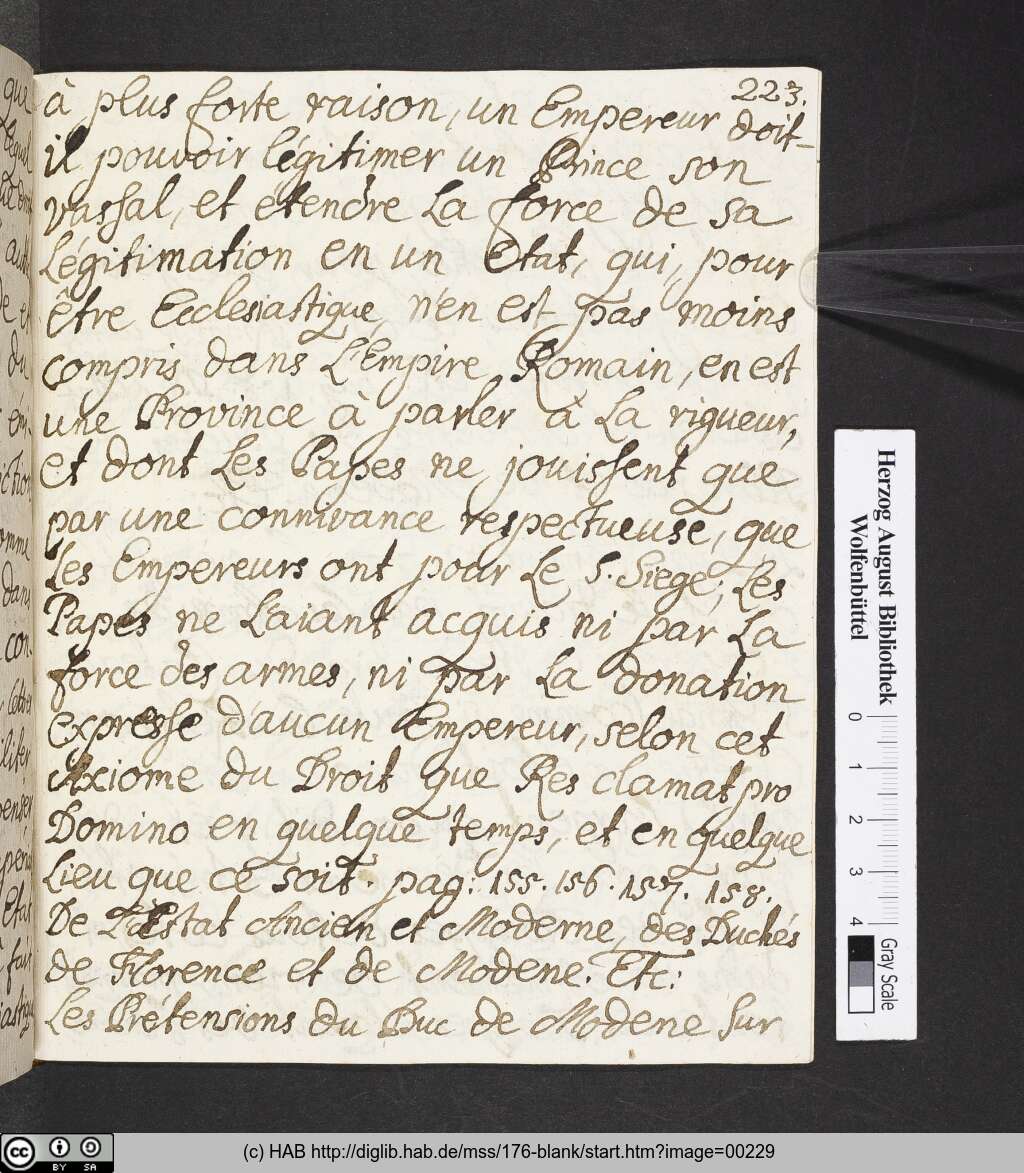 223.
à plus forte raison, un Empereur doit-
il pouvoir légitimer un Prince son
vassal, et étendre La force de sa
Légitimation en un Etat, qui, pour
être Ecclesiastique, n'en est pas moins
compris dans L'Empire Romain, en est
une Province à parler à La rigueur,
et dont Les Papes ne jouissent que
par une connivance respectueuse, que
Les Empereurs ont pour Le S. Siege; Les
Papes ne L'aiant acquis ni par La
force des armes, ni par La donation
expresse d'aucun Empereur, selon cet
Axiome du Droit que Res clamat pro
Domino en quelque temps, et en quelque
Lieu que ce soit. pag: 155. 156. 157. 158.
De L'Estat Ancien et Moderne, des Duchés
de Florence et de Modene. Etc:
Les Prétensions du Duc de Modene sur
Herzog August Bibliothek
Wolfenbüttel
0 1 2 3 4
Gray Scale
cc BY SA
(c) HAB http://diglib.hab.de/mss/176-blank/start.htm?image=00229